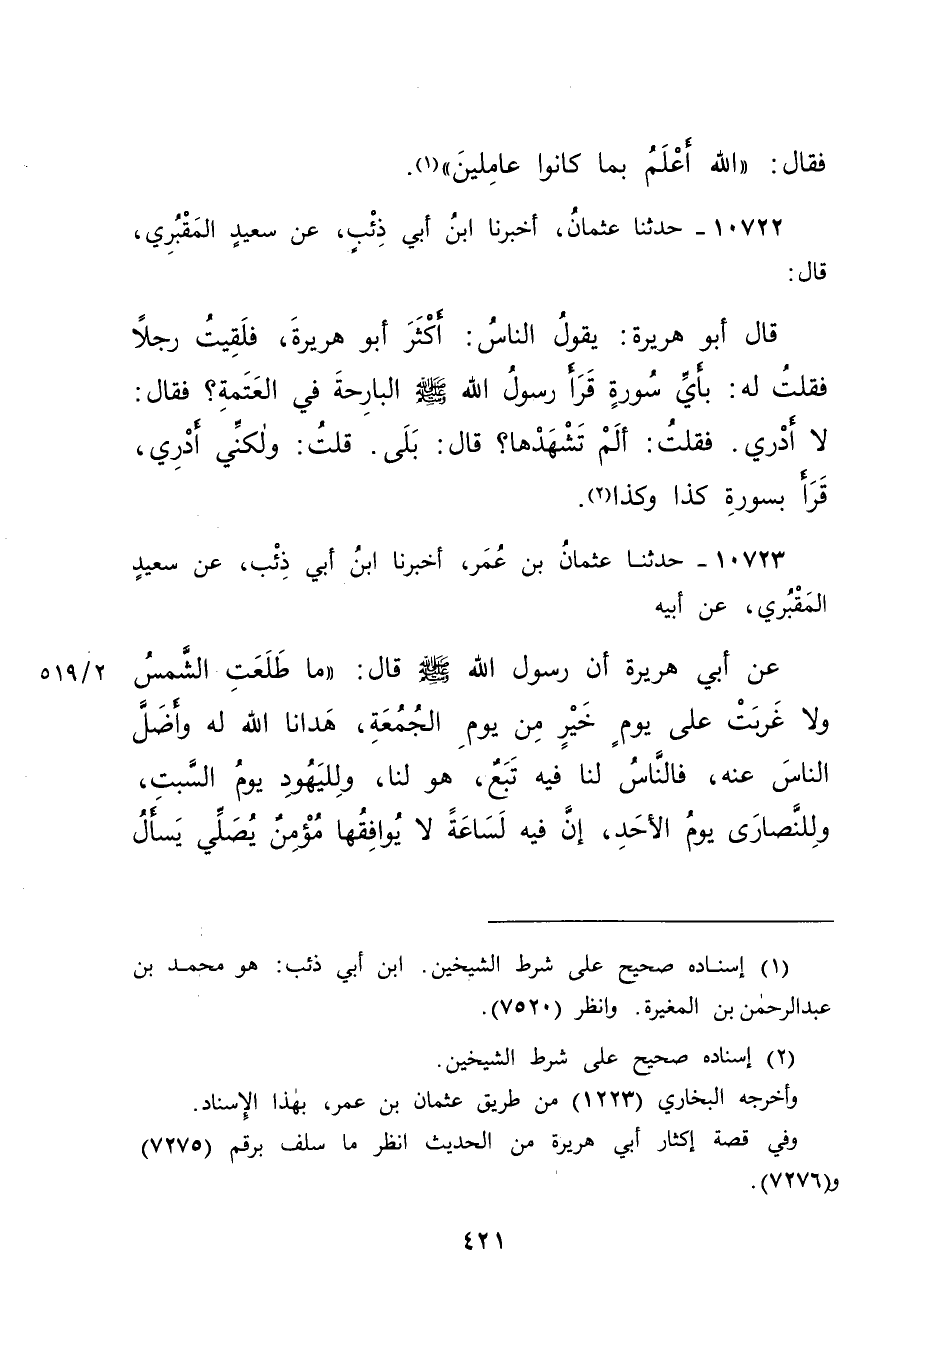 فقال: «الله أَعْلَمُ بما كانوا عامِلينَ»(١).
١٠٧٢٢ - حدثنا عثمانُ، أخبرنا ابنُ أبي ذِئْبٍ، عن سعيدٍ المَقْبُرِي،
قال:
قال أبو هريرة: يقولُ الناسُ: أَكْثَرَ أبو هريرةَ، فلَقِيتُ رجلاً
فقلتُ له: بأَيِّ سُورةٍ قَرَأَ رسولُ الله ﷺ البارِحةَ في العَتَمةِ؟ فقال:
لا أَدْري. فقلتُ: ألَمْ تَشْهَدْها؟ قال: بَلَى. قلتُ: ولٰكنِّي أَدْرِي،
قَرَأَ بسورةِ كذا وكذا(٢).
١٠٧٢٣ - حدثنا عثمانُ بن عُمَر، أخبرنا ابنُ أبي ذِئْب، عن سعيدٍ
المَقْبُري، عن أبيه
عن أبي هريرة أن رسول الله ﷺ قال: «ما طَلَعَتِ الشَّمسُ ٥١٩/٢
ولا غَرَبَتْ على يومٍ خَيْرٍ مِن يومِ الجُمُعَةِ، هَدانا الله له وأَضَلَّ
الناسَ عنه، فالنَّاسُ لنا فيه تَبَعٌ، هو لنا، ولِليَهُودِ يومُ السَّبتِ،
ولِلنَّصارَى يومُ الأحَدِ، إنَّ فيه لَسَاعَةً لا يُوافِقُها مُؤْمِنٌ يُصَلِّي يَسأَلُ
(١) إسناده صحيح على شرط الشيخين. ابن أبي ذئب: هو محمد بن
عبدالرحمٰن بن المغيرة. وانظر (٧٥٢٠).
(٢) إسناده صحيح على شرط الشيخين.
وأخرجه البخاري (١٢٢٣) من طريق عثمان بن عمر، بهٰذا الإسناد.
وفي قصة إكثار أبي هريرة من الحديث انظر ما سلف برقم (٧٢٧٥)
و(٧٢٧٦).
٤٢١